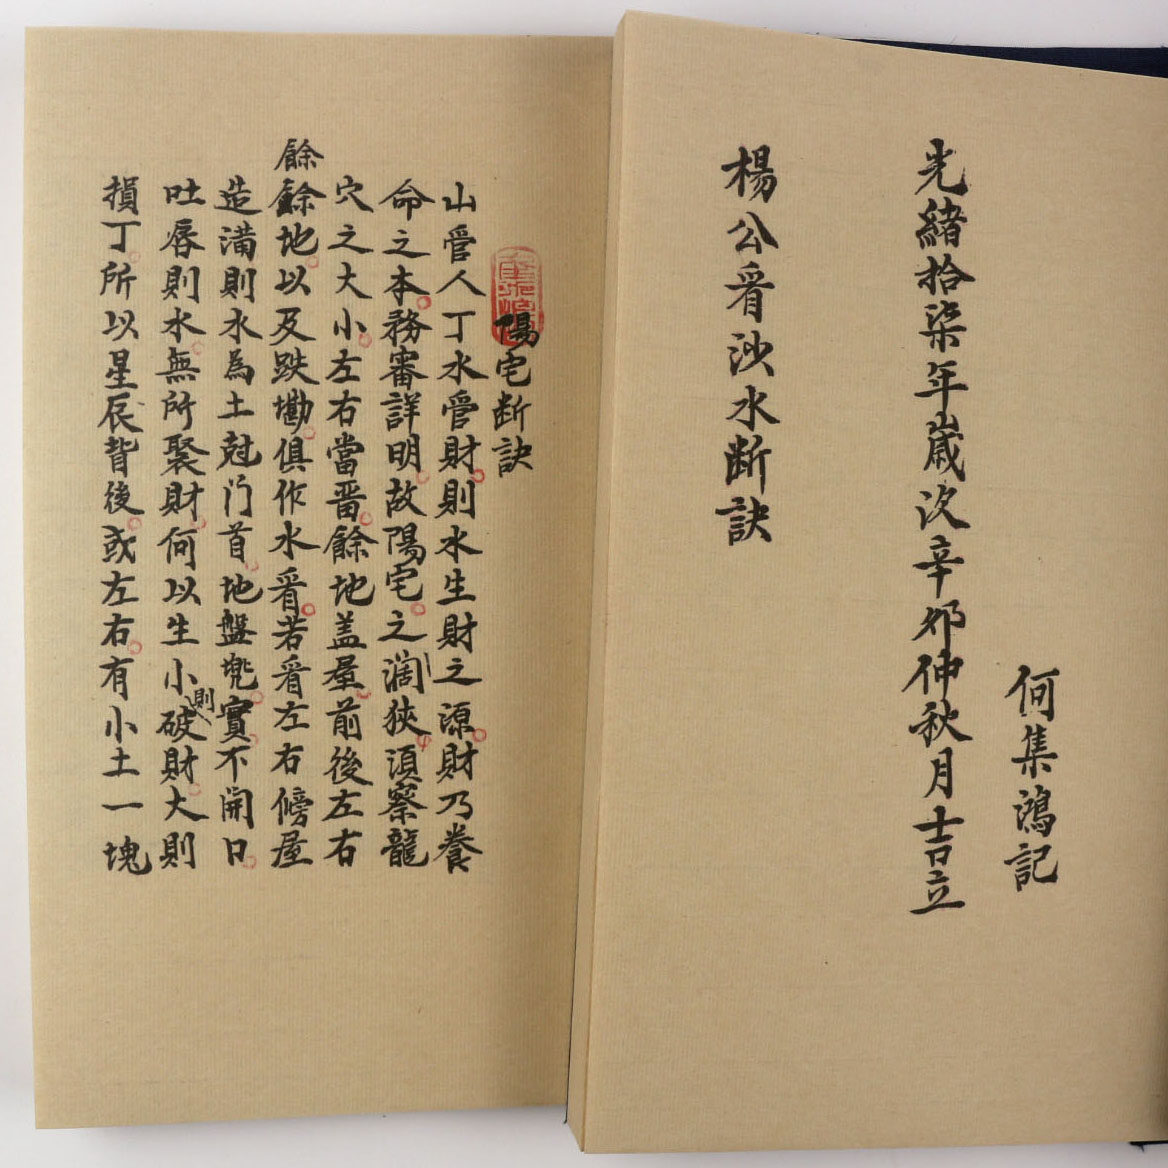 何集鴻記
光緒拾柒年歲次辛卯仲秋月吉立
楊公看沙水斷訣
陽宅断訣
山管人丁水管財則水生財之源財乃養
命之本務審詳明故陽宅之濶狹須察龍
穴之大小左右當畨餘地盖屋前後左右
餘
餘地以及跌墈俱作水看若看左右傍屋
造满則水為土尅门首地盤兠實不開口
吐唇則水無所聚財何以生小則破財大則
損丁所以星辰背後或左右有小土一塊